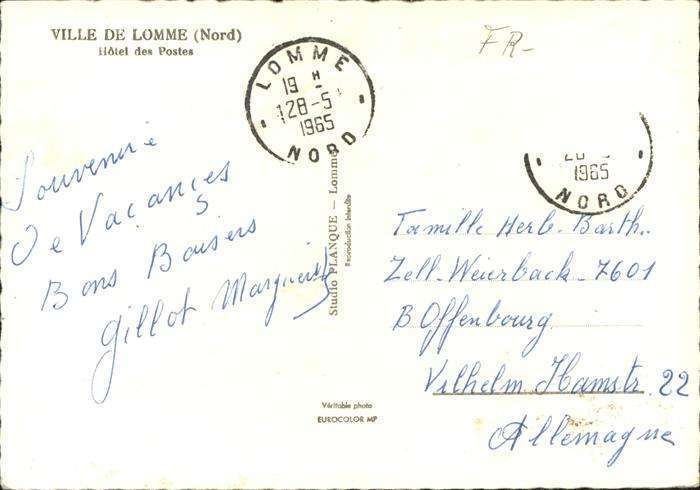 VILLE DE LOMME (Nord)
Hôtel des Postes
FR-
LOMME
19 H
128-5
1965
NORD
1965
NORD
Souvenir
De Vacances
Bons Baisers
Gillot Marguerite
Studio PLANQUE — Lomme
Reproduction interdite
Famille Herb. Barth.
Zell-Weierback-7601
B Offenbourg
Vilhelm Hamstr. 22
Allemagne
Véritable photo
EUROCOLOR MP